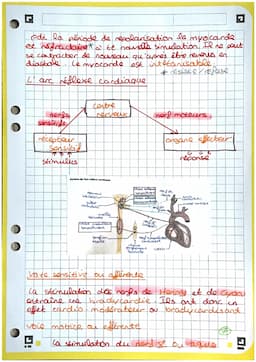 de la période de repolarisation le myocarde
est réfractaire* à tte nouvelle stimulation. Il ne peut
se contracter de nouveau qu'après être revenu en
diastole. Le myocarde est intétanisable.
L'arc réflexe cardiaque
centre
nerveux
nerfs
sensitifs
nerf moteurs
récepteur
sensitif
organe effecteur
stimulus
réponse
Voie sensitive ou afférente
La stimulation des nerfs de Hering et de Cyon
entraîne une bradycardie. Ils ont donc un
effet cardio modérateur ou bradycardisant
Voie motrice ou efférente
La stimulation du nerf X ou vague